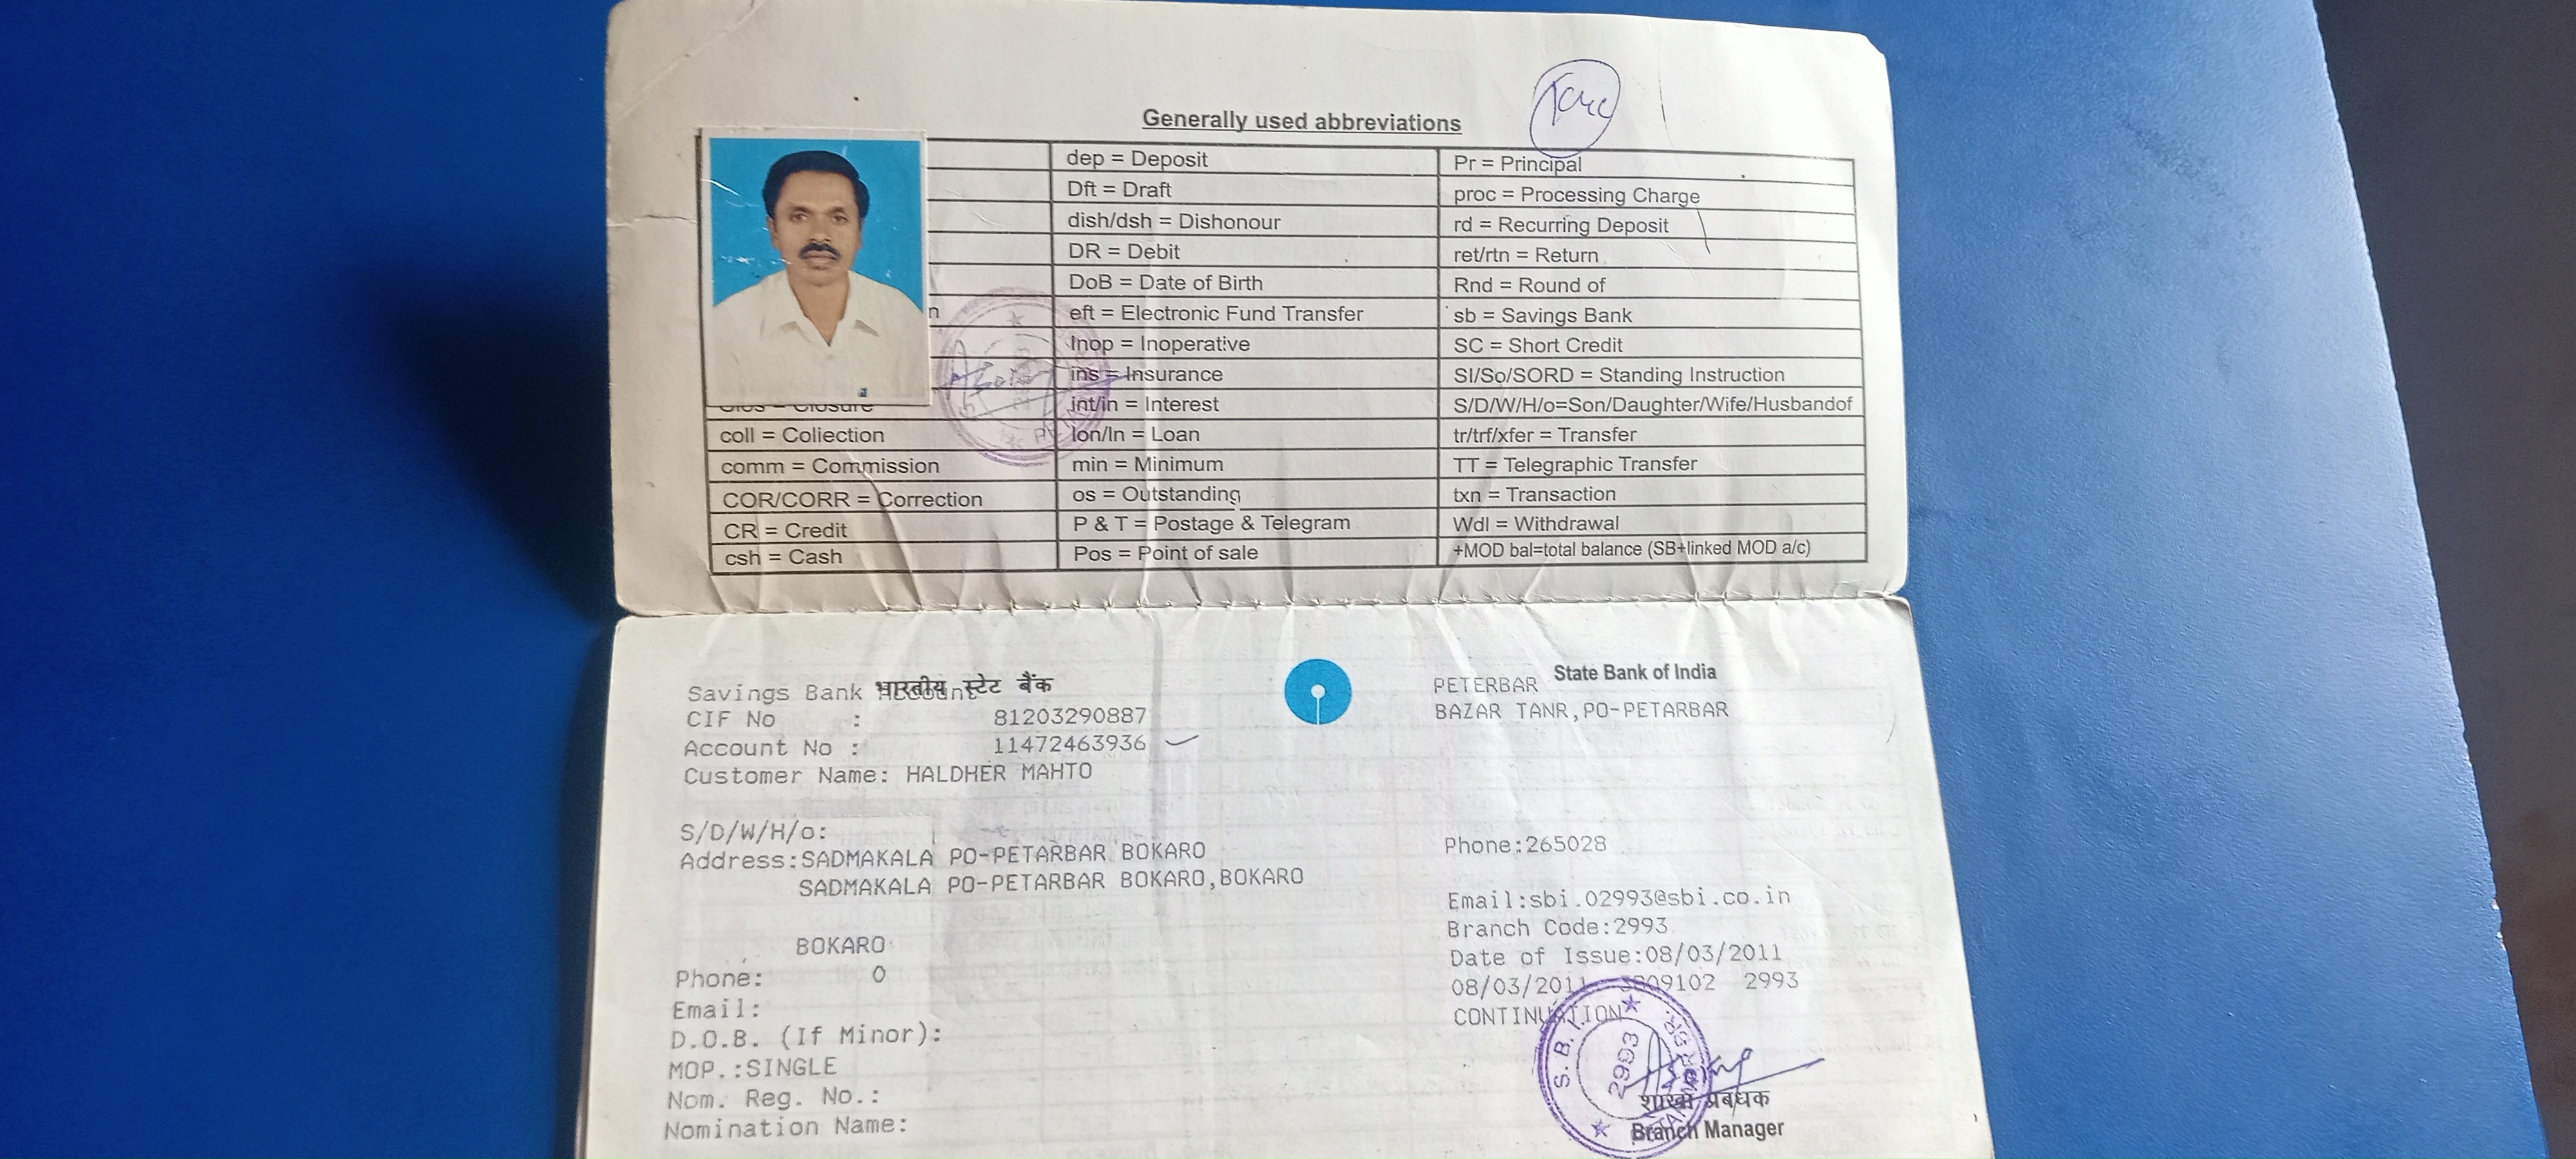 Generally used abbreviations
dep = Deposit
Pr = Principal
Dft = Draft
proc = Processing Charge
dish/dsh = Dishonour
rd = Recurring Deposit
DR = Debit
ret/rtn = Return
DoB = Date of Birth
Rnd = Round of
n
eft = Electronic Fund Transfer
sb = Savings Bank
Inop = Inoperative
SC = Short Credit
ins = Insurance
SI/So/SORD = Standing Instruction
Clos = Closure
int/in = Interest
S/D/W/H/o=Son/Daughter/Wife/Husbandof
coll = Collection
lon/ln = Loan
tr/trf/xfer = Transfer
comm = Commission
min = Minimum
TT = Telegraphic Transfer
COR/CORR = Correction
os = Outstanding
txn = Transaction
CR = Credit
P & T = Postage & Telegram
Wdl = Withdrawal
csh = Cash
Pos = Point of sale
+MOD bal=total balance (SB+linked MOD a/c)
Savings Bank Account
भारतीय स्टेट बैंक
State Bank of India
CIF No : 81203290887
Account No : 11472463936
Customer Name: HALDHER MAHTO
S/D/W/H/o:
Address:SADMAKALA PO-PETARBAR BOKARO
SADMAKALA PO-PETARBAR BOKARO,BOKARO
BOKARO
Phone: 0
Email:
D.O.B. (If Minor):
MOP.:SINGLE
Nom. Reg. No.:
Nomination Name:
PETERBAR
BAZAR TANR,PO-PETARBAR
Phone:265028
Email:sbi.02993@sbi.co.in
Branch Code:2993
Date of Issue:08/03/2011
08/03/2011 09102 2993
CONTINUATION
S. B. I.
2993
शाखा प्रबंधक
Branch Manager